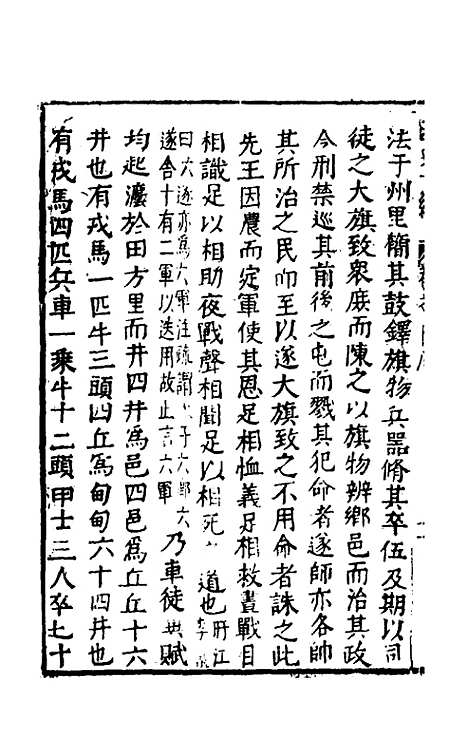 法于州里簡其鼓鐸旗物兵器脩其卒伍及期以司
徒之大旗致衆庶而陳之以旗物辨鄉邑而治其政
令刑禁巡其前後之屯而戮其犯命者遂師亦各帥
其所治之民而至以遂大旗致之不用命者誅之此
先王因農而定軍使其恩足相恤義足相救晝戰目
相識足以相助夜戰聲相聞足以相死 道也盱江
曰六遂亦爲六軍注疏謂 子六鄉六
遂合十有二軍以迭用故止言六軍
乃車徒 賦
均起瀍於田方里而井四井爲邑四邑爲丘丘十六
井也有戎馬一匹牛三頭四丘爲甸甸六十四井也
有戎馬四匹兵車一乗牛十二頭甲士三人卒七十